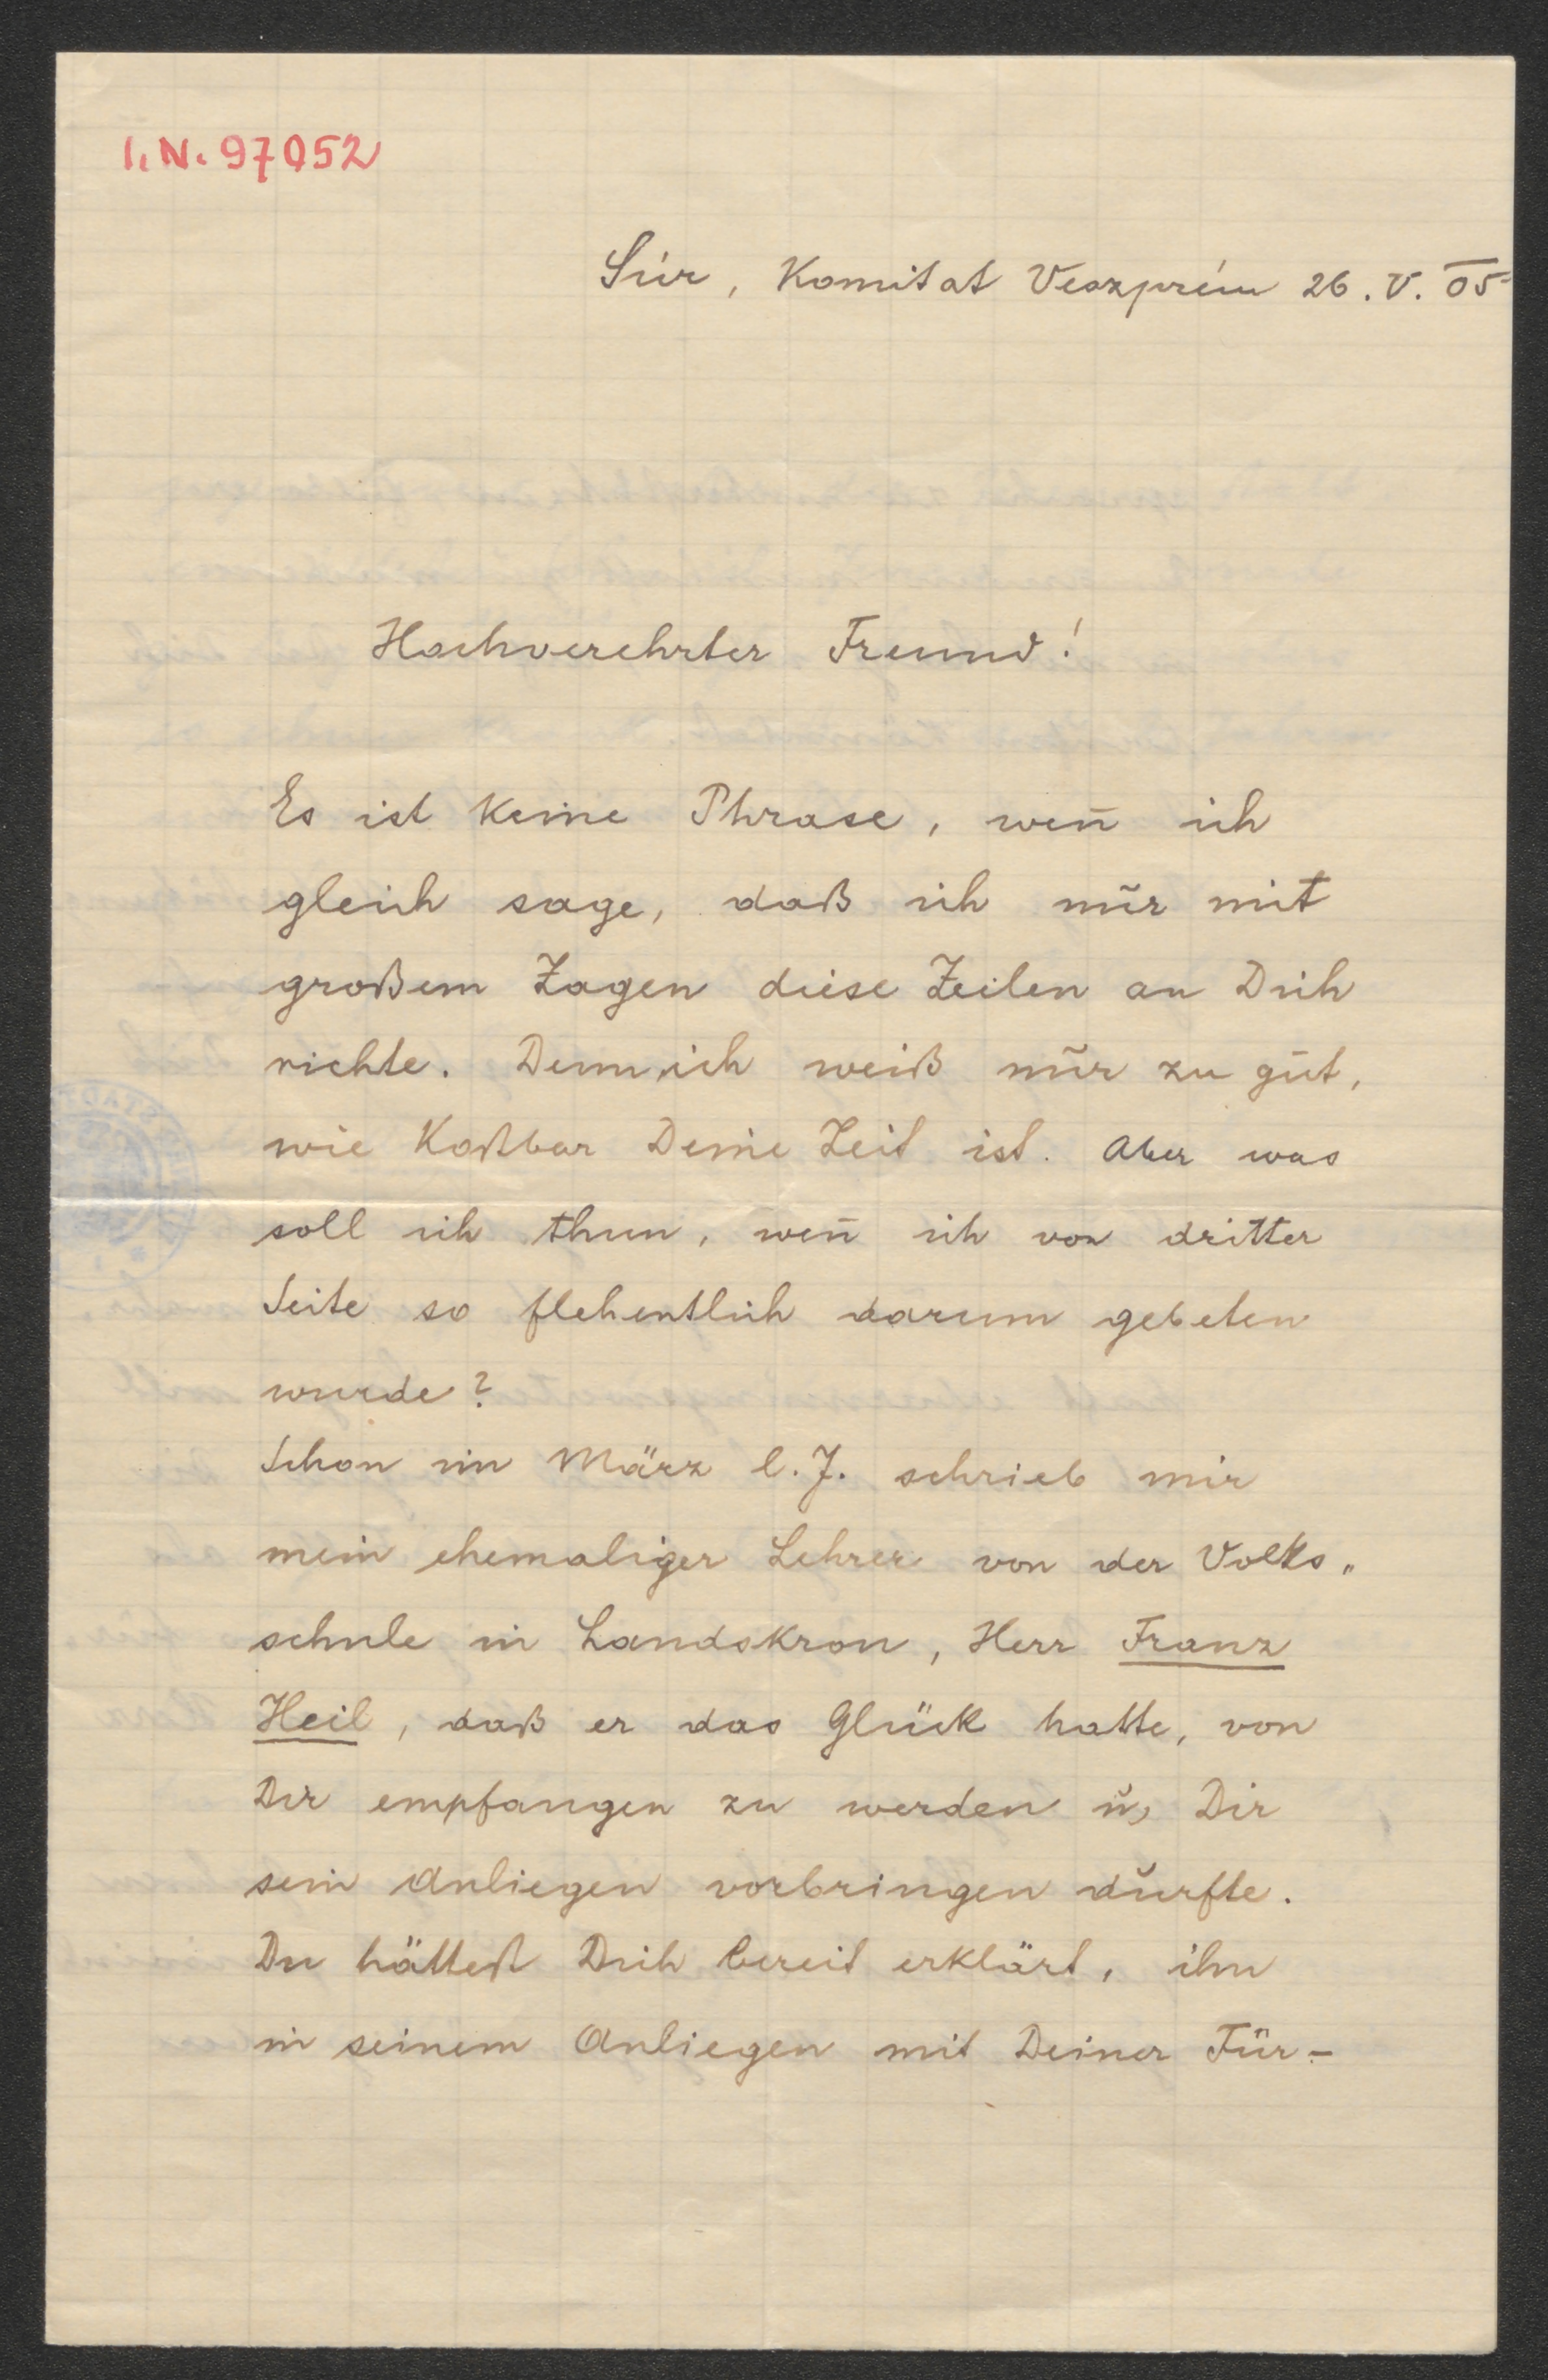 I. N. 97052
Súr, Komitat Veszprém 26. V. 05
Hochverehrter Freund!
Es ist keine Phrase, wen̄ ich
gleich sage, daß ich nur mit
großem Zagen diese Zeilen an Dich
richte. Denn ich weiß nur zu gut,
wie kostbar Deine Zeit ist. Aber was
soll ich thun, wen̄ ich von dritter
Seite so flehentlich darum gebeten
wurde?
Schon im März l. J. schrieb mir
mein ehemaliger Lehrer von der Volks„
schule in Landskron, Herr Franz
Heil, daß er das Glück hatte, von
Dir empfangen zu werden u, Dir
sein Anliegen vorbringen durfte.
Du hättest Dich bereit erklärt, ihn
in seinem Anliegen mit Deiner Für-